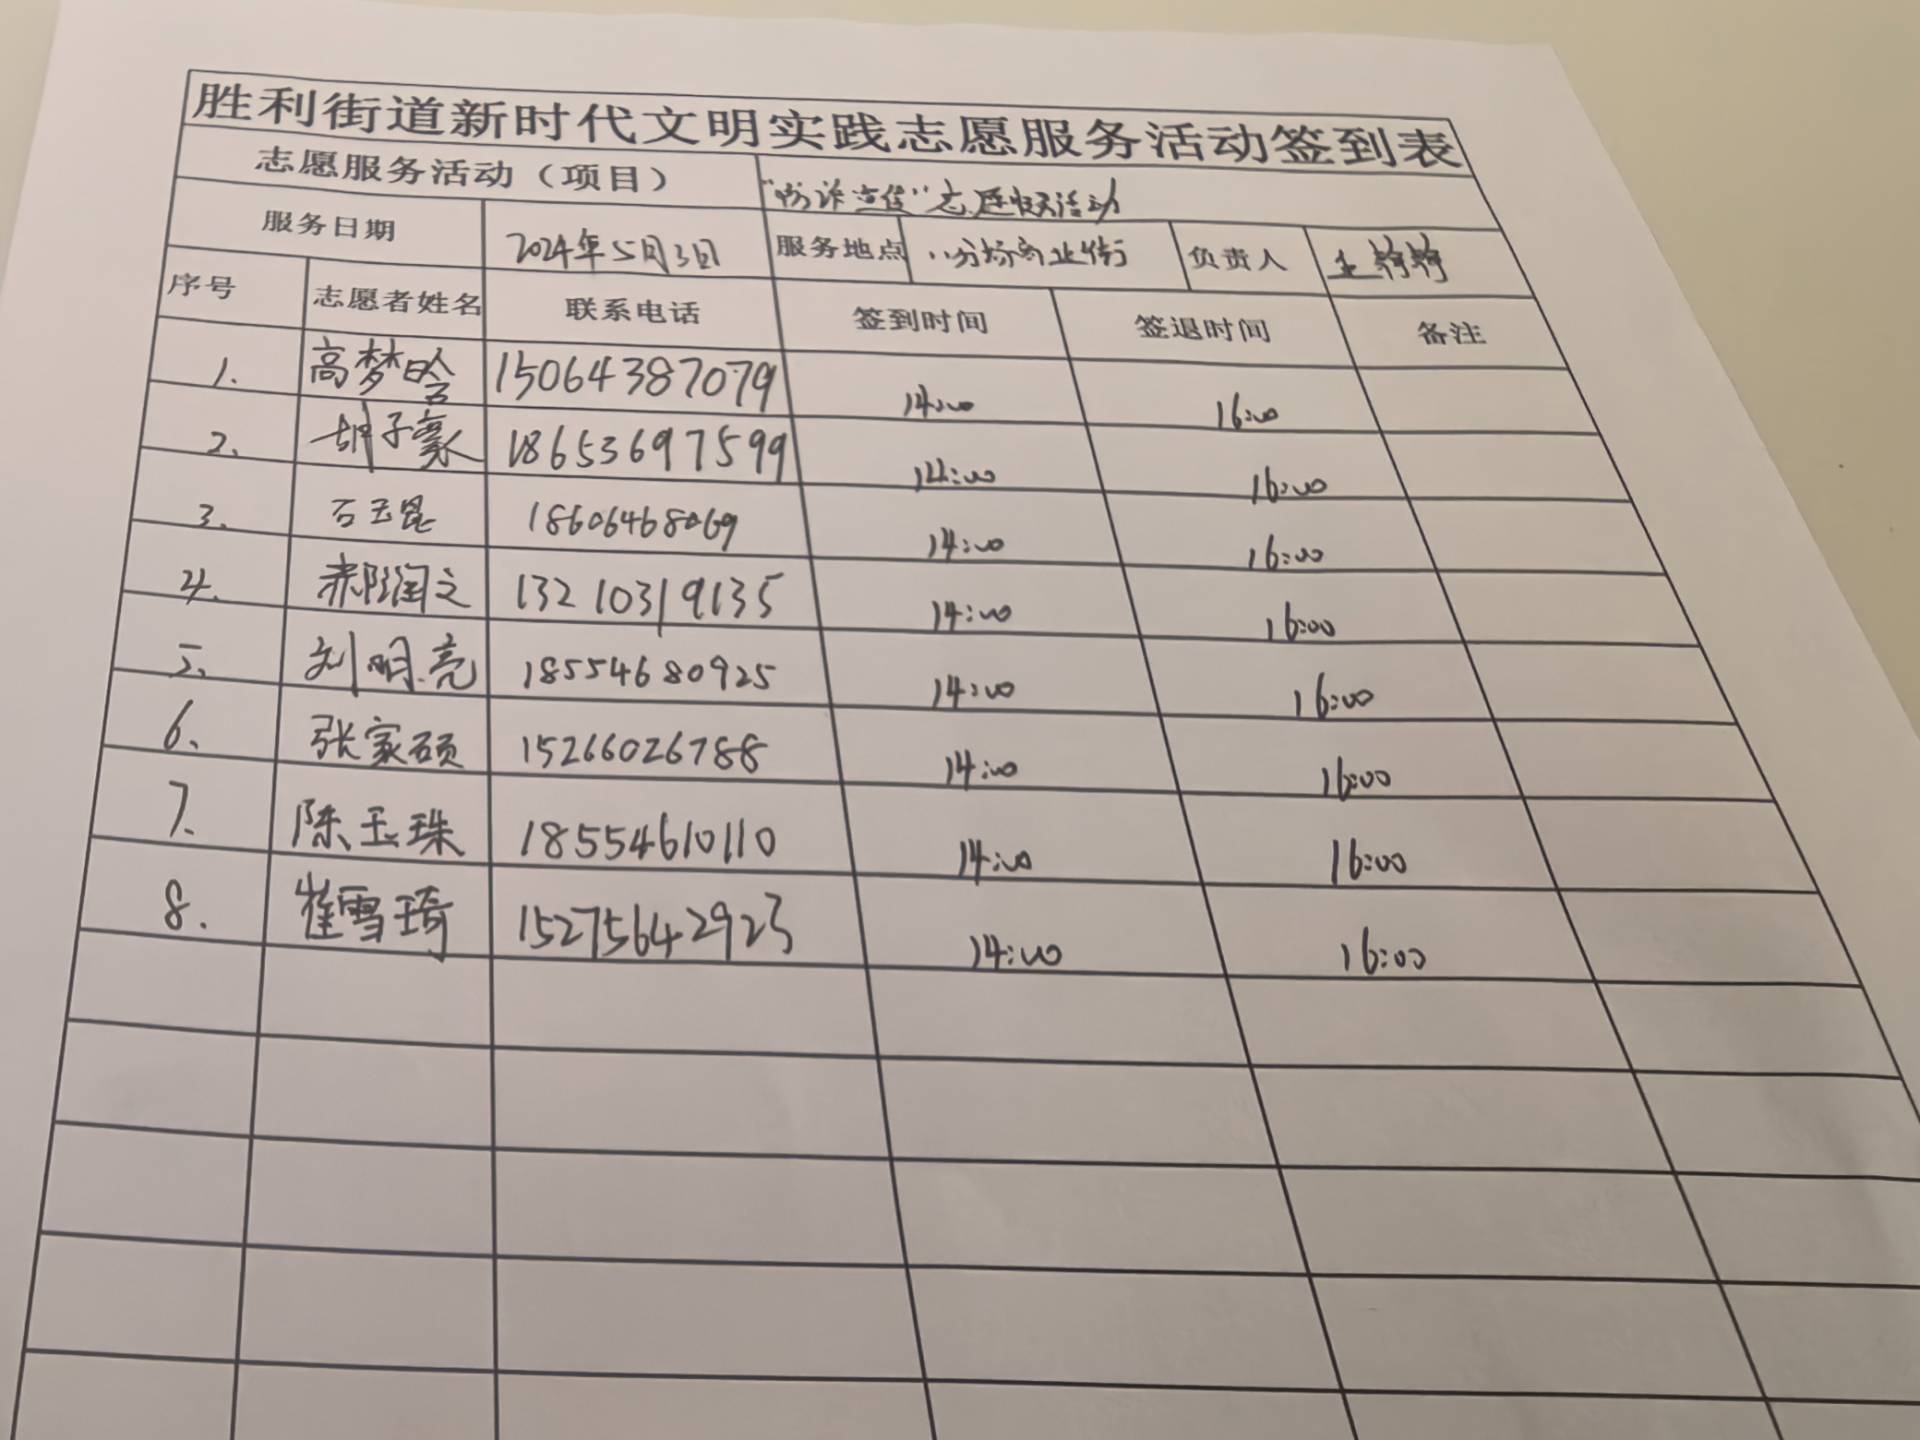 胜利街道新时代文明实践志愿服务活动签到表
志愿服务活动（项目） "防诈宣传"志愿服务活动
服务日期 2024年5月3日 服务地点 八分场商业街 负责人
序号 志愿者姓名 联系电话 签到时间 签退时间 备注
1. 高梦晗 15064387079 14:00 16:00
2. 胡子豪 18653697599 14:00 16:00
3. 石玉昆 18606468069 14:00 16:00
4. 郝润之 13210319135 14:00 16:00
5. 刘明亮 18554680925 14:00 16:00
6. 张家硕 15266026788 14:00 16:00
7. 陈玉珠 18554610110 14:00 16:00
8. 崔雪琦 15275642923 14:00 16:00